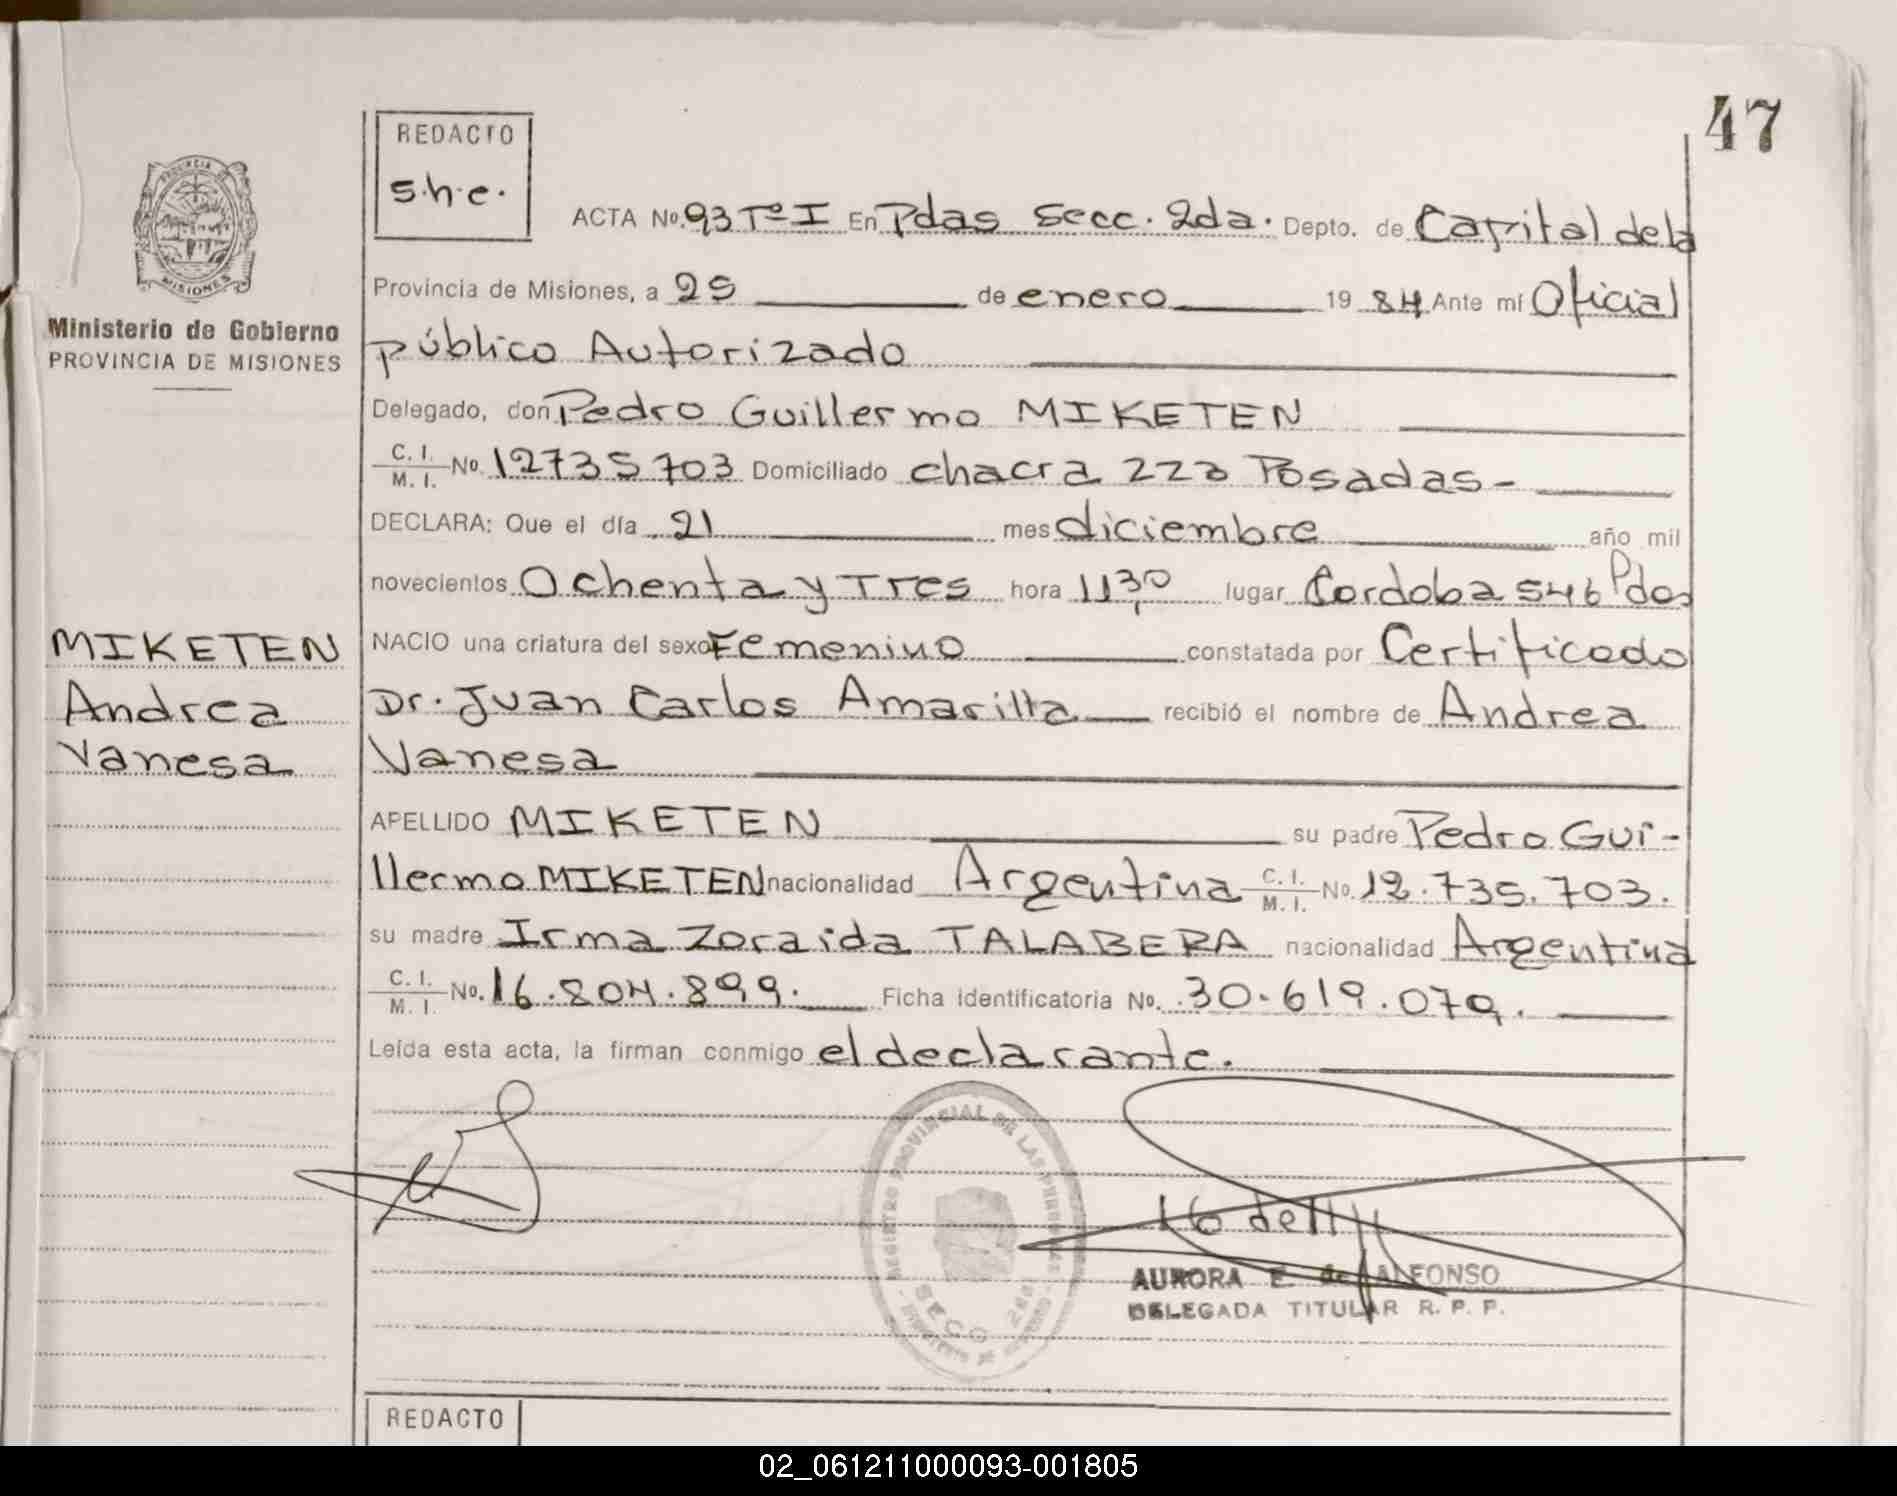 47
REDACTO
s.h.e.
PROVINCIA DE
MISIONES
Ministerio de Gobierno
PROVINCIA DE MISIONES
ACTA No. 93 Tº I En Pdas Secc. 2da. Depto. de Capital de la
Provincia de Misiones, a 25 de enero 19 84 Ante mí Oficial
público Autorizado
Delegado, don Pedro Guillermo MIKETEN
C. I. / M. I. No. 12735703 Domiciliado chacra 223 Posadas-
DECLARA: Que el día 21 mes diciembre año mil
novecientos Ochenta y Tres hora 11,30 lugar Cordoba 546 Pdas
NACIO una criatura del sexo Femenino constatada por Certificado
Dr. Juan Carlos Amarilla recibió el nombre de Andrea
Vanesa
MIKETEN
Andrea
Vanesa
APELLIDO MIKETEN su padre Pedro Gui-
llermo MIKETEN nacionalidad Argentina C. I. / M. I. No. 12.735.703.
su madre Irma Zoraida TALABERA nacionalidad Argentina
C. I. / M. I. No. 16.804.899. Ficha identificatoria No. 30.619.079.
Leída esta acta, la firman conmigo el declarante.
REGISTRO PROVINCIAL DE LAS PERSONAS
AURORA E. de ALFONSO
DELEGADA TITULAR R. P. P.
REDACTO
02_061211000093-001805